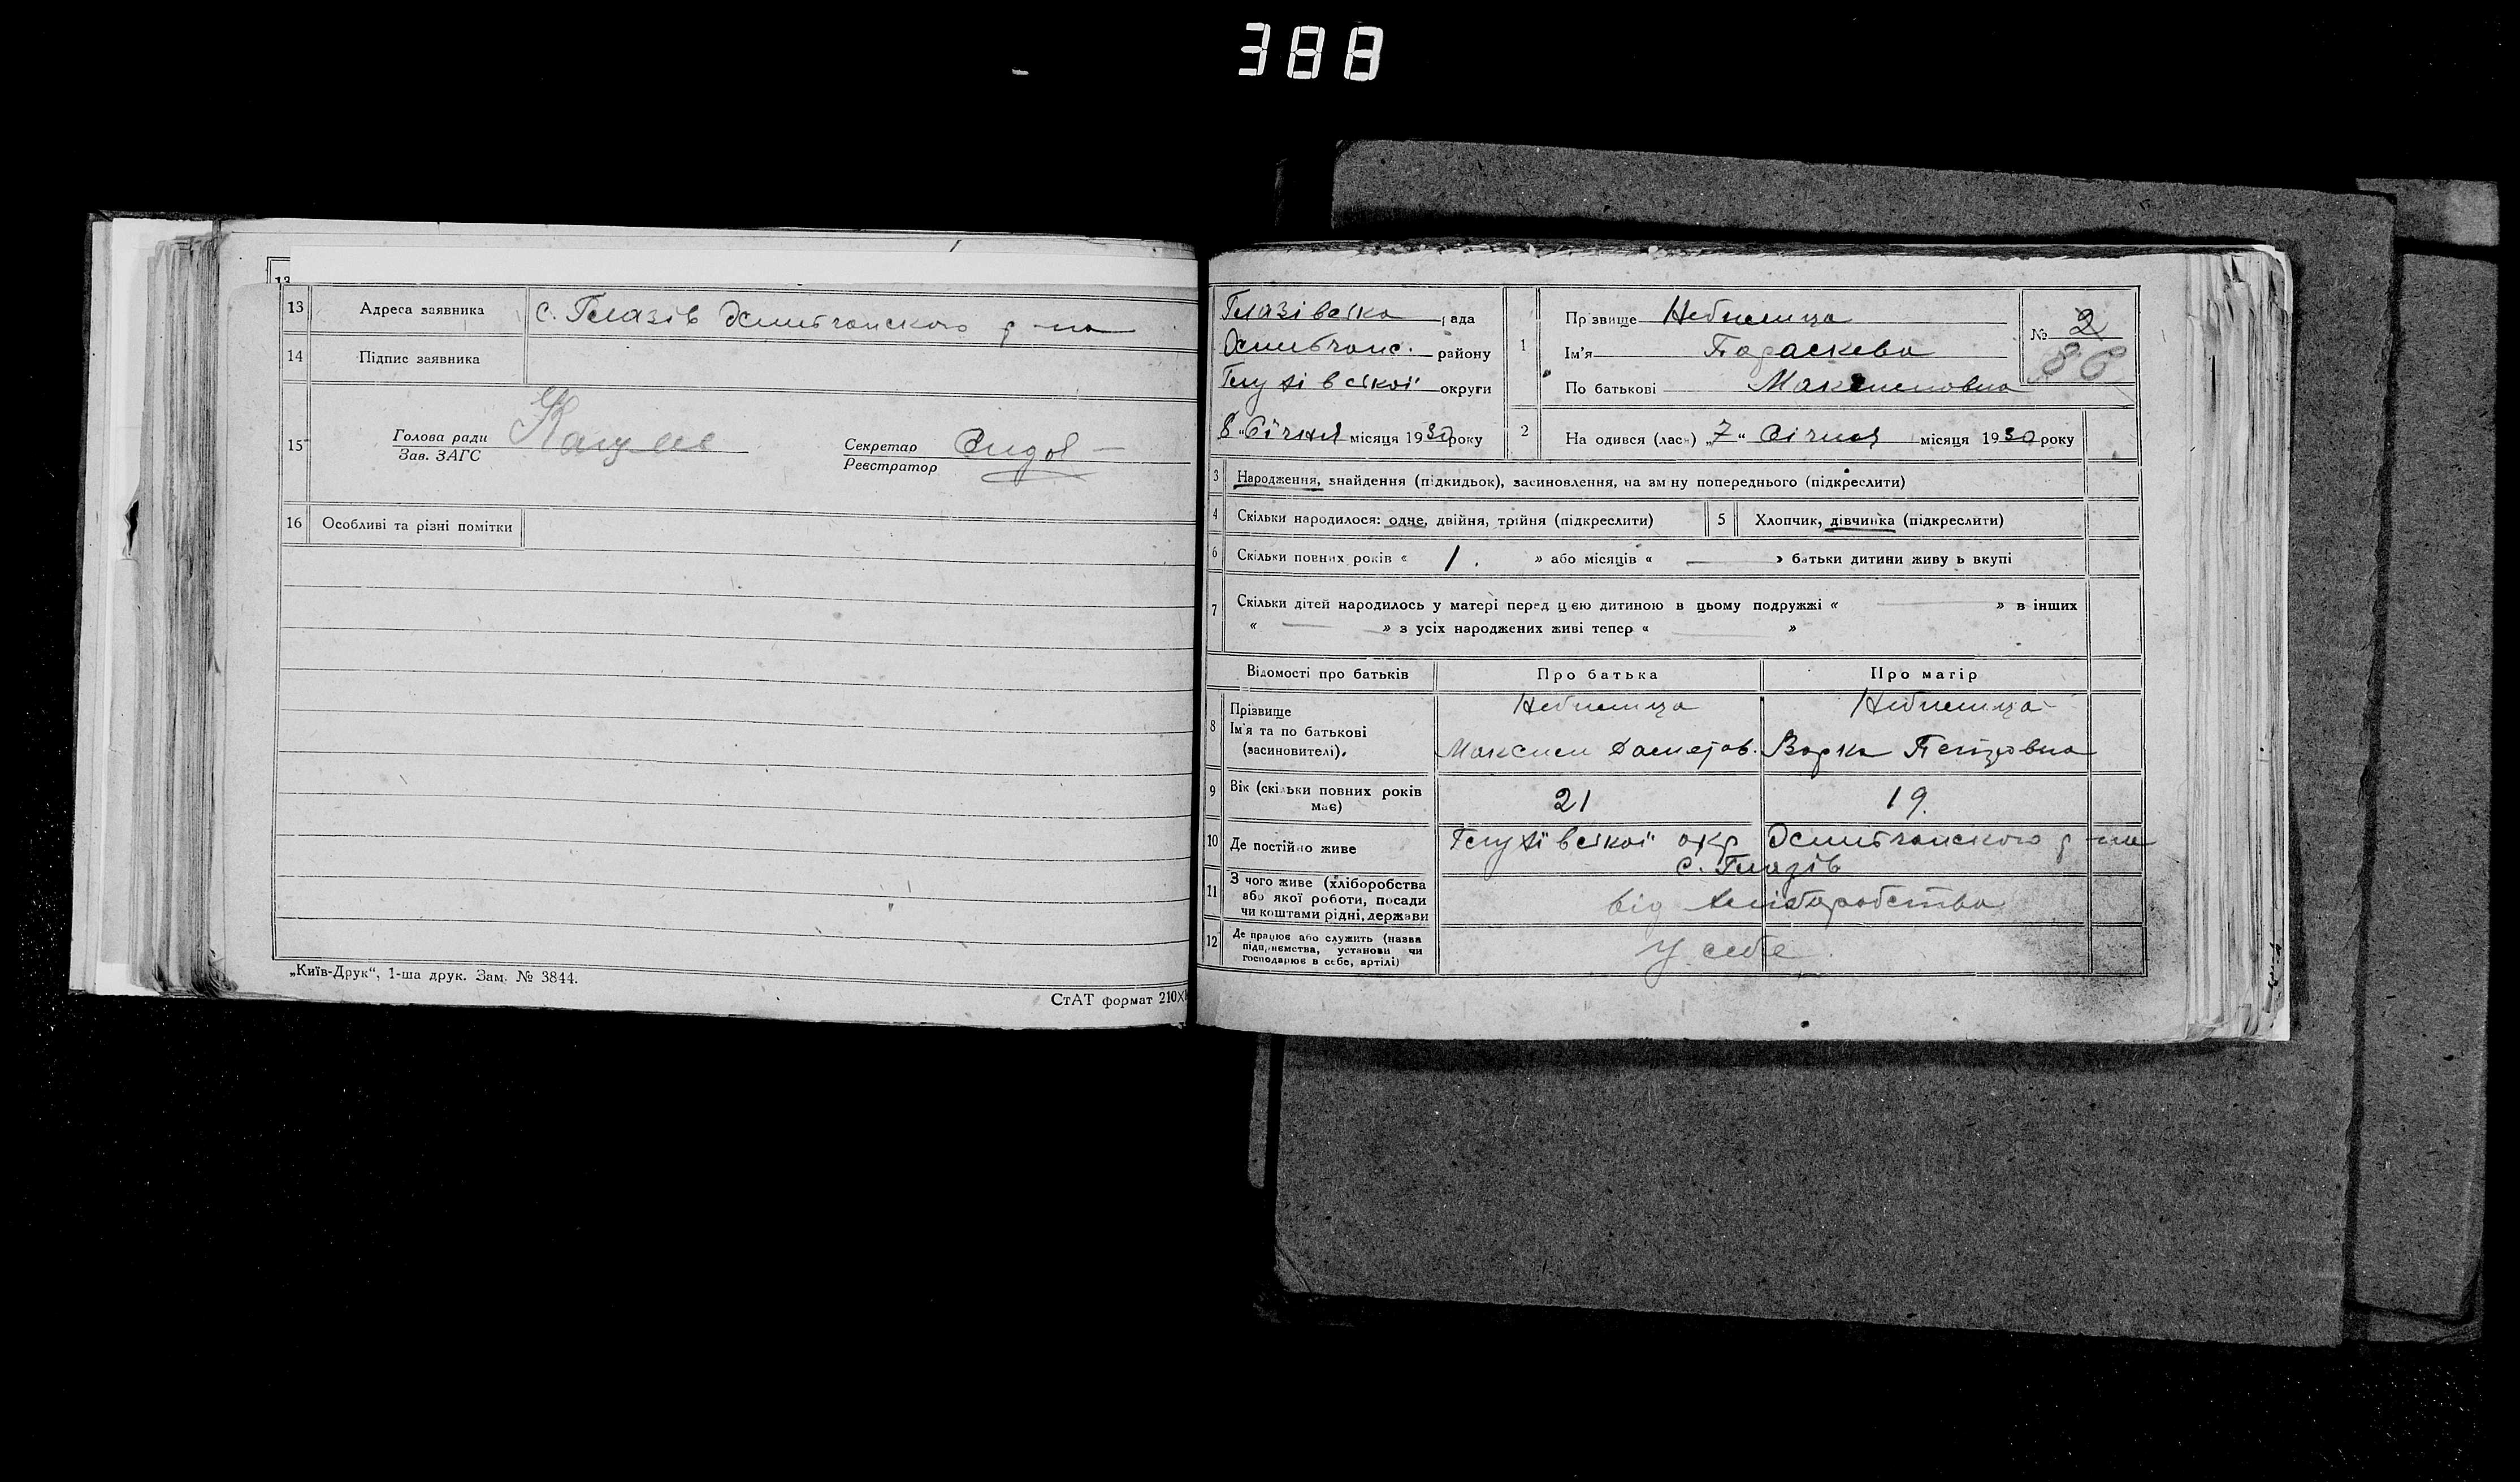 388
13 Адреса заявника с. Глазів Эсманьчанского р-на
14 Підпис заявника
15 Голова ради
Зав. ЗАГС
Секретар
Реєстратор
16 Особливі та різні помітки
„Київ-Друк“, 1-ша друк. Зам. № 3844.
СтАТ формат 210×
Глазівська рада
району
Глухівської округи
8 „Січня місяця 1930 року
1 Прізвище Небилица
Ім'я Параскева
По батькові Максимовна
№ 2
86
2 На одився (лась) „7“ Січня місяця 1930 року
3 Народження, знайдення (підкидьок), засиновлення, на зміну попереднього (підкреслити)
4 Скільки народилося: одне, двійня, трійня (підкреслити)
5 Хлопчик, дівчинка (підкреслити)
6 Скільки повних років « 1. » або місяців « — » батьки дитини живуть вкупі
7 Скільки дітей народилось у матері перед цією дитиною в цьому подружжі « — » в інших
« — » з усіх народжених живі тепер « — »
Відомості про батьків Про батька Про матір
8 Прізвище Небилица Небилица
Ім'я та по батькові
(засиновителі). Максим Варка Петровна
9 Вік (скільки повних років має) 21 19.
10 Де постійно живе Глухівської окр р-на
с. Глазів
11 З чого живе (хліборобства
або якої роботи, посади
чи коштами рідні, держави від хліборобства
12 Де працює або служить (назва
підприємства, установи чи
господарює в себе, артілі) у себе